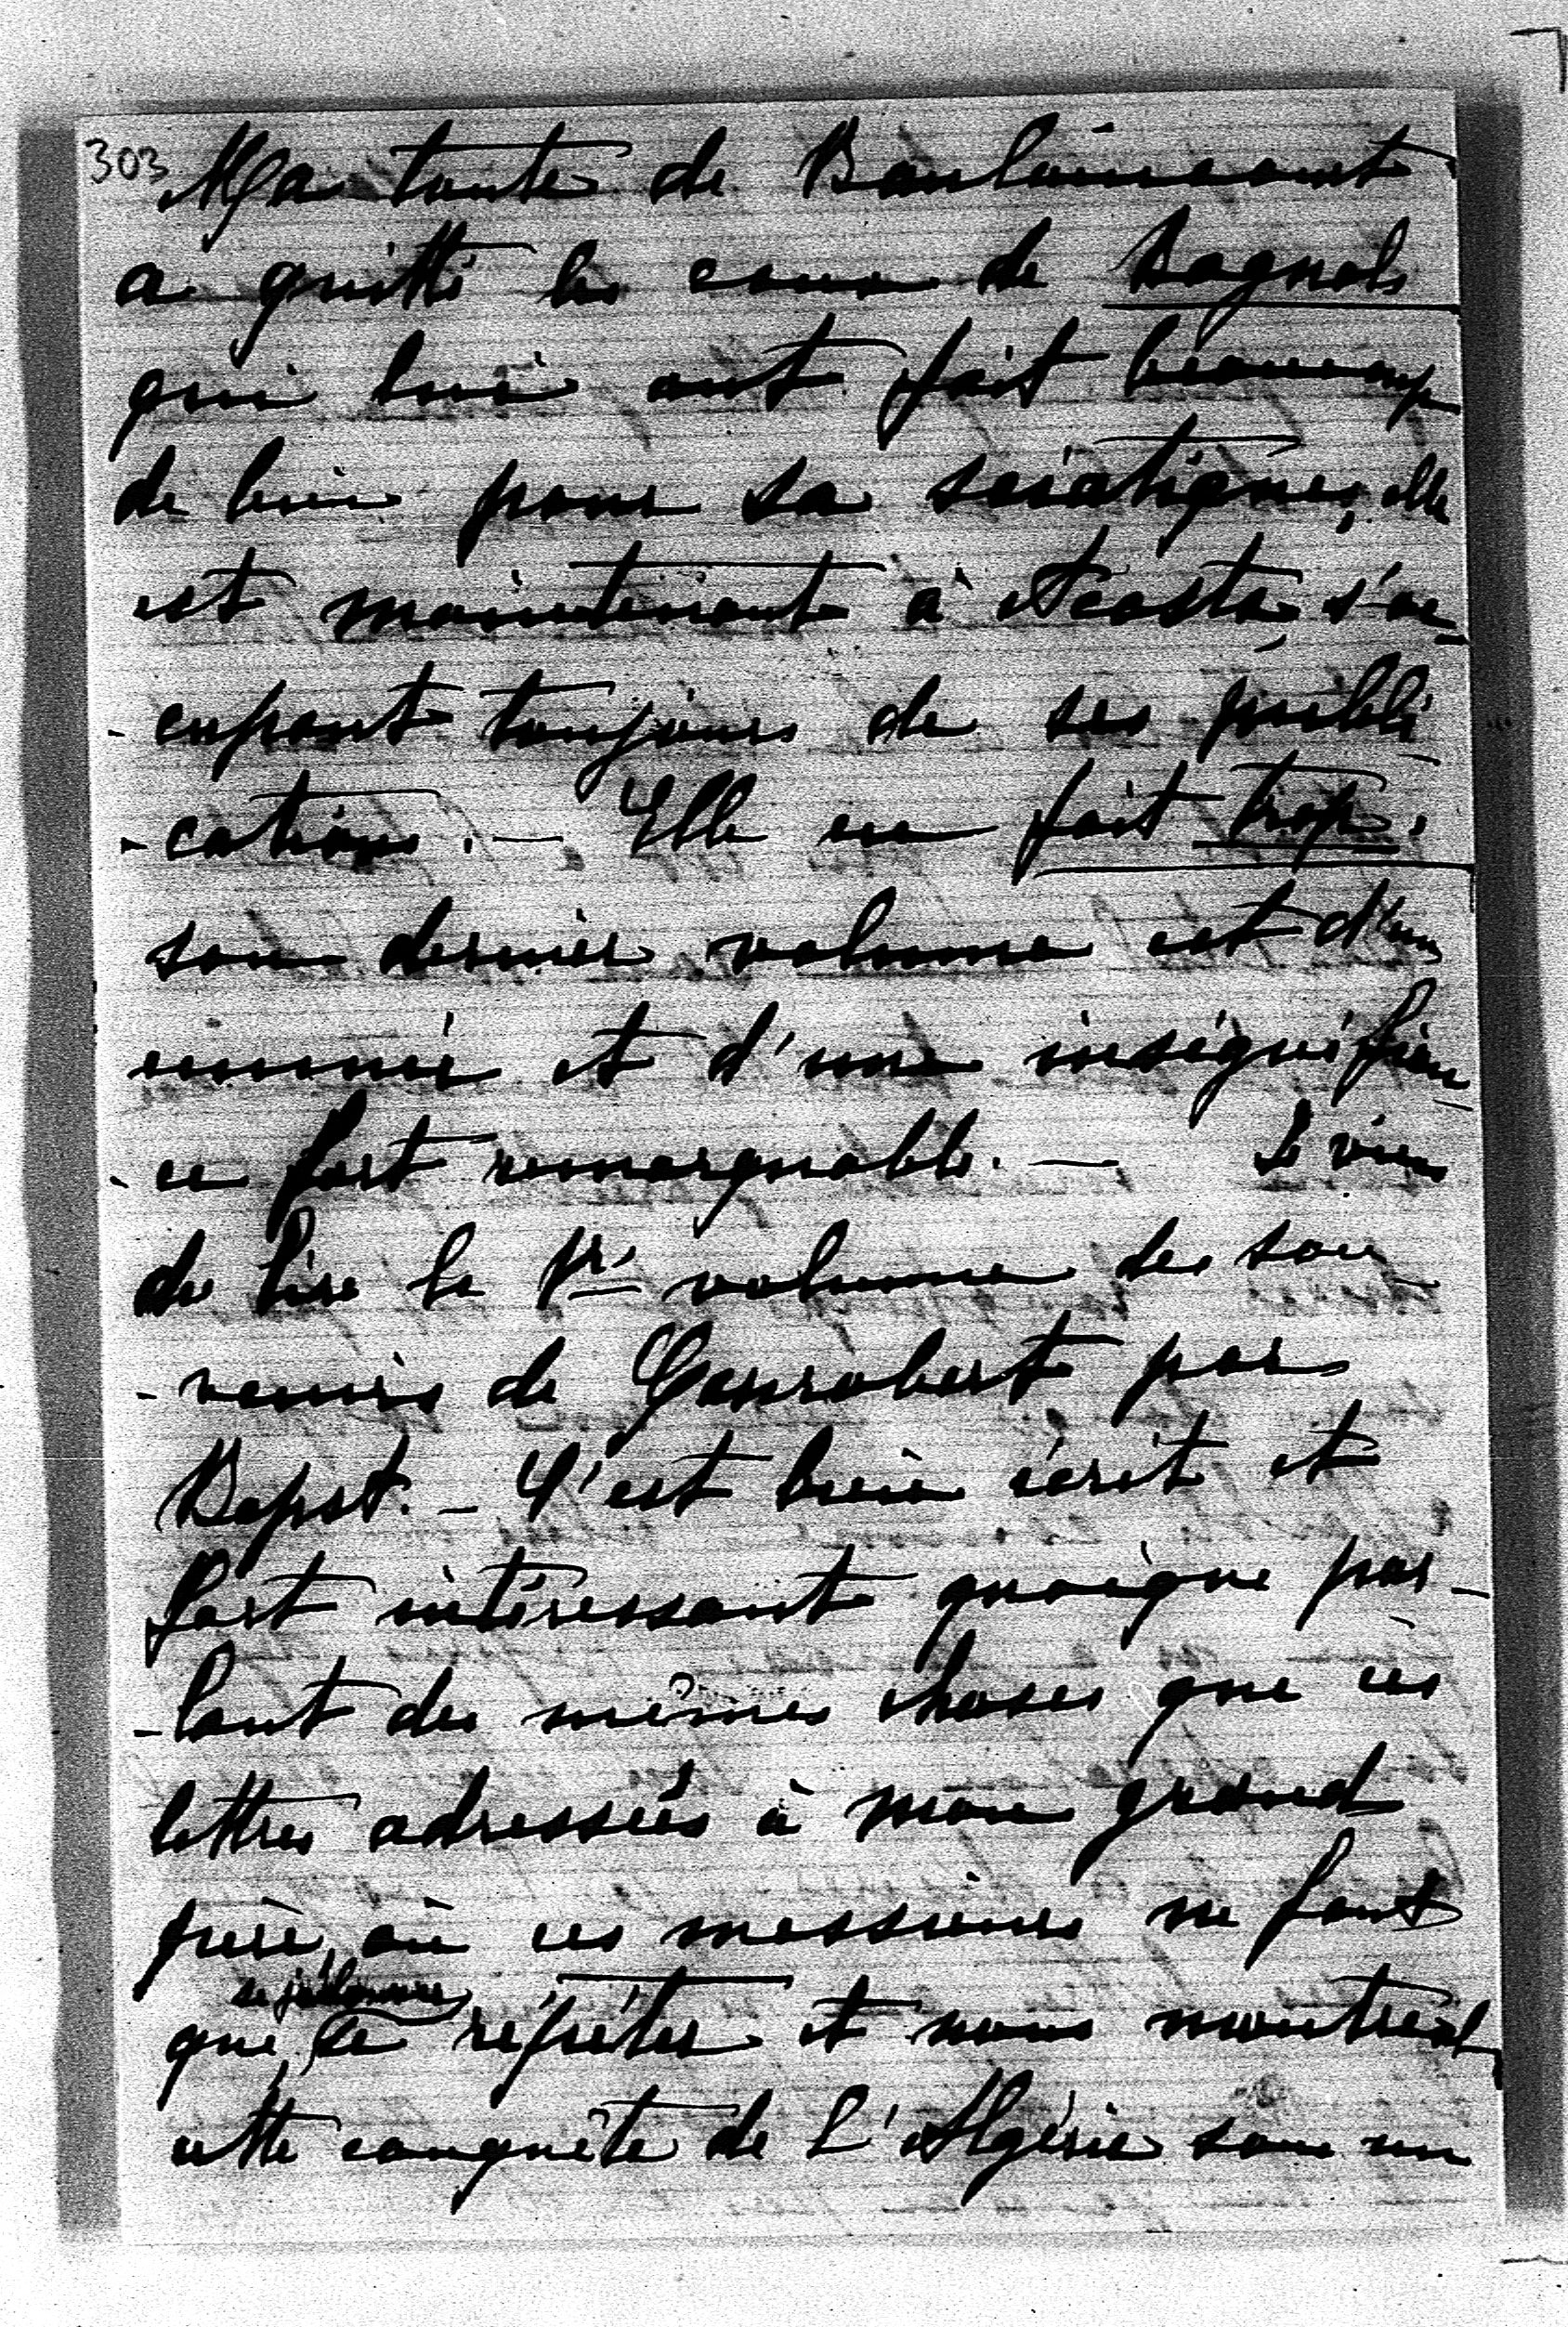 303
Ma tante de Beaulaincourt
a quitté les eaux de Bagnols
qui lui ont fait beaucoup
de bien pour sa sciatique, elle
est maintenant à Acosta, s'oc-
-cupant toujours de ses publi
-cations. — Elle en fait trop.
son dernier volume est d'un
ennui et d'une insignifian
-ce fort remarquable. — Je viens
de lire le 1er volume des sou
-venirs de Canrobert par
Bapst. — C'est bien écrit et
fort intéressant quoique par-
-lant des mêmes choses que ces
lettres adressées à mon grand
père, où ces messieurs ne font
que se répéter et nous montrent
cette conquête de l'Algérie sous un